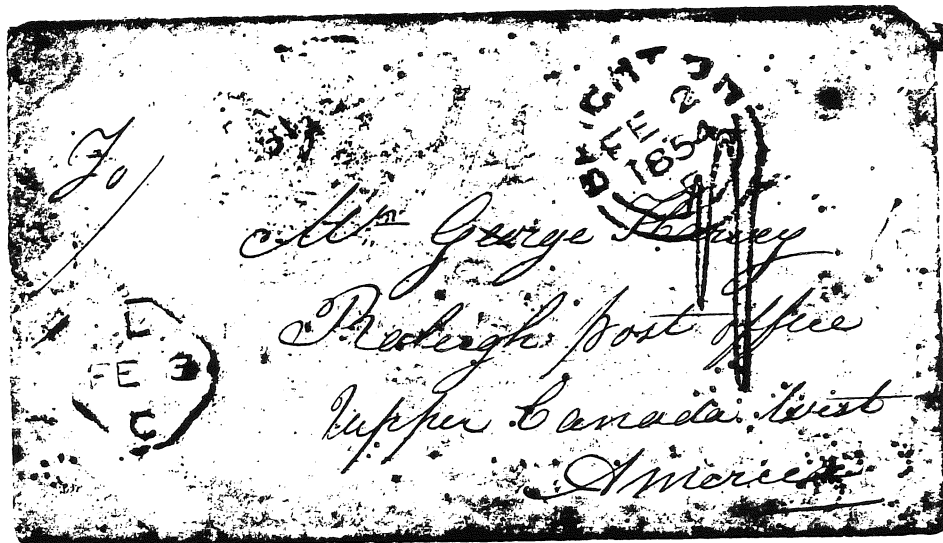 BRIGHTON
FE 2
1854
To
Mr George Harvey
Raleigh post office
Upper Canada West
America
L
FE 3
C